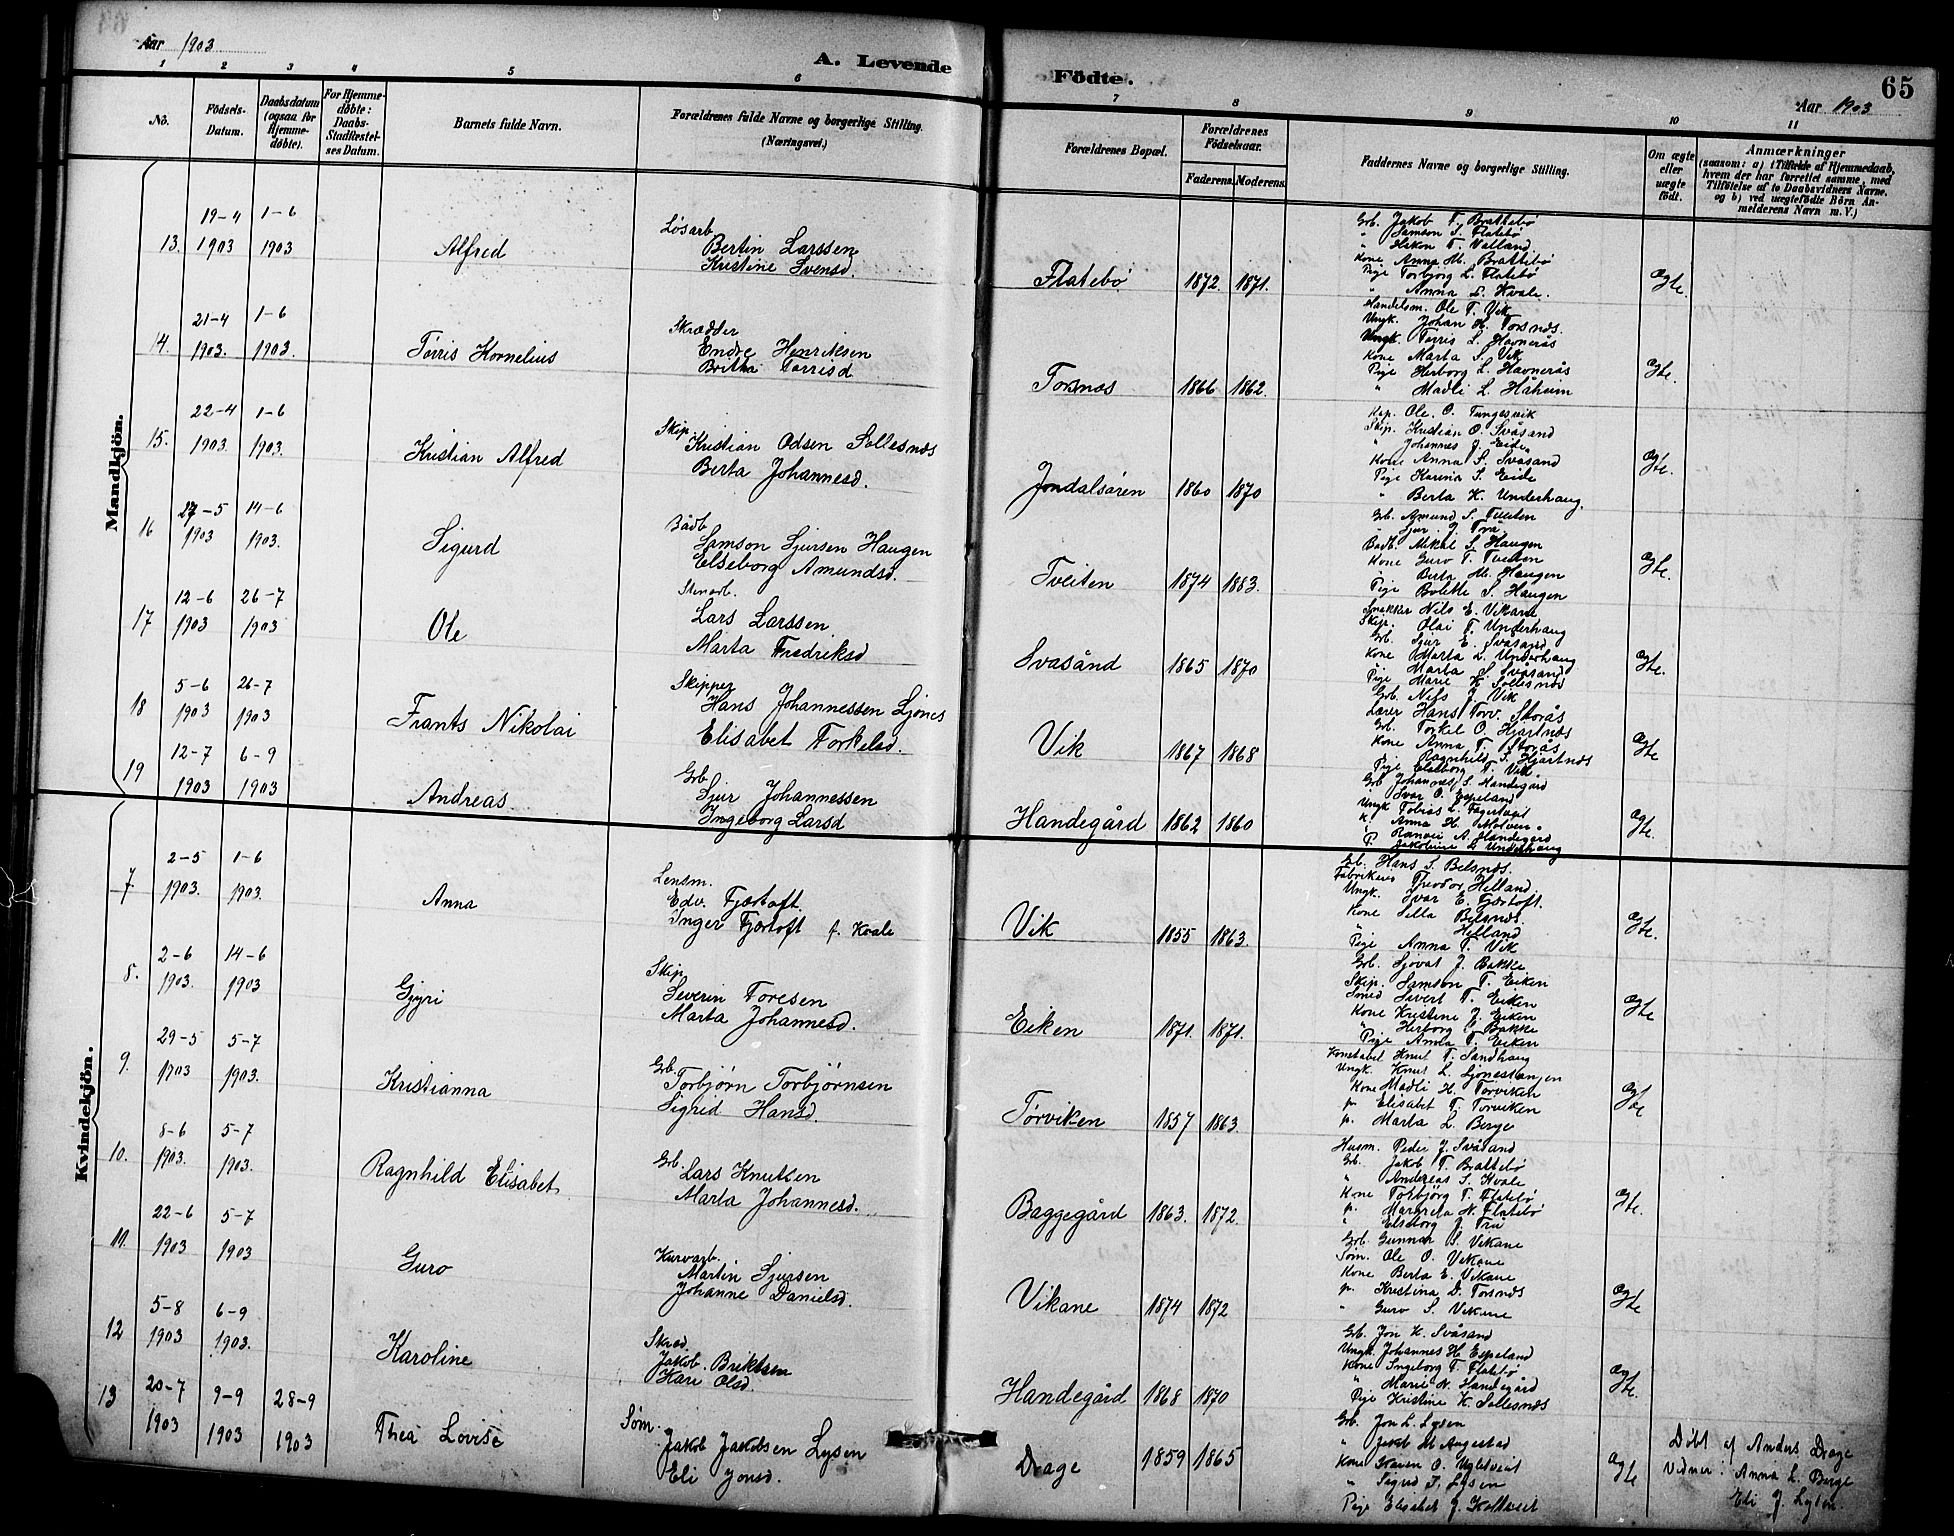 Aar 1903
A. Levende Födte.
65
Aar 1903
1 2 3 4 5 6 7 8 9 10 11
No.
Födsels-Datum.
Daabsdatum (ogsaa for Hjemme-døbte).
For Hjemme-døbte: Daabs-Stadfæstel-ses Datum.
Barnets fulde Navn.
Forældrenes fulde Navne og borgerlige Stilling. (Næringsvei.)
Forældrenes Bopæl.
Forældrenes Födselsaar.
Faderens. Moderens.
Faddernes Navne og borgerlige Stilling.
Om ægte eller uægte födt.
Anmærkninger
(saasom: a) i Tilfælde af Hjemmedaab, hvem der har forrettet samme, med Tilföielse af to Daabsvidners Navne. og b) ved uægtefödte Börn An-melderens Navn m. V.)
Mandkjön.
13. 19-4 1903 1-6 1903 Alfred
Løsarb
Bertin Larssen
Kristine Svensd.
Flatebø 1872. 1871. Ægte.
Grb. Jakob T. Brattebø
" Samson S. Flatebø
" Håkon T. Valland
Kone Anna M. Brattebø
Pige Torbjørg L. Flatebø
" Anna L. Kvale.
14. 21-4 1903. 1-6 1903. Tørris Kornelius
Skrædder
Endre Henriksen
Britha Tørrisd
Torsnæs 1866 1862. Ægte.
Handelsm. Ole T. Vik
Ungk. Johan H. Torsnæs.
Ungk. Tørris L. Havnerås
Kone Marta S. Vik
Pige Herborg L. Havnerås
" Madli L. Håheim
15. 22-4 1903. 1-6 1903. Kristian Alfred
Skip.
Kristian Odsen Sollesnæs
Berta Johannesd.
Jondalsøren 1860 1870 Ægte.
Kap. Ole O. Tungesvik
Skip. Kristian O. Svåsand
" Johannes J. Eide
Kone Anna S. Svåsand
Pige Karina S. Eide
" Berta K. Underhaug.
16 27-5 1903 14-6 1903. Sigurd
Bådb
Samson Sjursen Haugen
Elseborg Amundsd.
Tveiten 1874 1883. Ægte.
Grb. Amund S. Tveiten
" Sjur J. Trå
Badb. Mikal S. Haugen
Kone Guro T. Tveiten
" Berta M. Haugen
Pige Bolette S. Haugen
17 12-6 1903 26-7 1903 Ole
Stenarb.
Lars Larssen
Marta Fredriksd
Svasånd 1865 1870 Ægte.
Snekker Nils E. Vikane
Skip. Olai T. Underhaug
Grb. Sjur E. Svåsand
Kone Marta L. Underhaug
" Marta S. Svåsand
Pige Marie K. Sollesnæs
18 5-6 1903 26-7 1903 Frants Nikolai
Skipper
Hans Johannessen Ljones
Elisabet Torkelsd.
Vik 1867 1868 Ægte.
Grb. Nils J. Vik
Lærer Hans Torv. Storås
Grb. Torkel O. Hjartnæs
Kone Anna T. Storås
" Ragnhild S. Hjartnæs
Pige Elseborg T. Vik
19 12-7 1903 6-9 1903 Andreas
Grb
Sjur Johannessen
Ingeborg Larsd
Handegård 1862 1860 Ægte.
Grb Johannes S. Handegård
" Ivar O. Espeland
Ungk Tobias L.
K. Anna H.
" Ranvei A. Handegård
P. Jakobine L. Underhaug
Kvindekjön.
7 2-5 1903. 1-6 1903. Anna
Lensm.
Edv. Fjærtoft.
Inger Fjærtoft f. Kvale
Vik 1855 1863. Ægte.
Grb. Hans S. Belsnæs.
Fabrikeier Theodor Helland.
Ungk. Ivar E. Fjærtoft.
Kone Sella Belsnæs.
" Helland
Pige Anna T. Vik
8. 2-6 1903. 14-6 1903 Gjyri
Skip
Severin Toresen
Marta Johannesd.
Eiken 1871. 1871. Ægte.
Grb. Sjovat J. Bakke
Skip. Samson T. Eiken
Smed Sivert T. Eiken
Kone Kristine J. Eiken
" Herborg S. Bakke
Pige Anna T. Eiken
9. 29-5 1903 5-7 1903. Kristianna
Grb.
Torbjørn Torbjørnsen
Sigrid Hansd.
Tørviken 1857 1863. Ægte
Konstabel Knut T. Sandhaug
Ungk. Knut L. Ljonestangen
Kone Madli H. Torviken
p. Elisabet T. Torviken
p. Marta L. Berge
10. 8-6 1903. 5-7 1903. Ragnhild Elisabet
Grb.
Lars Knutsen
Marta Johannesd.
Baggegård 1863. 1872. Ægte.
Husm. Peder J. Svåsand
Grb. Jakob T. Brattebø
" Andreas S. Kvale
Kone Torbjørg T. Flatebø
p. Margreta N. Flatebø
" Elseborg J. Trå
11. 22-6 1903 5-7 1903 Guro
Kurvarb.
Martin Sjursen
Johanne Danielsd.
Vikane 1874 1872 Ægte
Grb. Gunnar S. Vikane
Søm. Ole O. Vikane
Kone Berta E. Vikane
p. Kristina D. Torsnæs
" Guro S. Vikane
12 5-8 1903 6-9 1903. Karoline
Skræd.
Jakob Briktsen
Kari Olsd.
Handegård 1868 1870 Ægte.
Grb. Jon K. Svåsand
Ungk. Johannes H. Espeland
Kone Ingeborg T. Flatebø
" Marie N. Handegård
Pige Kristine K. Sollesnæs
13 20-7 1903 9-9 1903 28-9 1903 Thea Lovise
Søm.
Jakob Jakobsen Lysen
Eli Jonsd.
Drage 1859 1865 Ægte
Grb. Jon L. Lysen
" Jakob M. Augestad
Kone O.
" Sigrid J. Lysen
Pige Elisabet J. Koltveit
Døbt af Anders Drage
Vidner: Anna L. Berge
Eli J. Lysen.